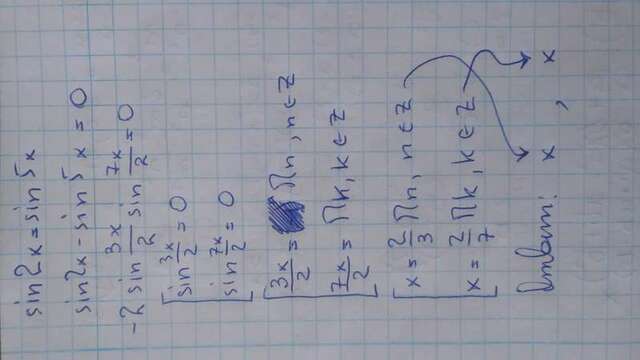 sin2x = sin5x
sin2x - sin5x = 0
-2 sin 3x/2 sin 7x/2 = 0
[ sin 3x/2 = 0
sin 7x/2 = 0
[ 3x/2 = Πn, n∈Z
7x/2 = Πk, k∈Z
[ x = 2/3 Πn, n∈Z
x = 2/7 Πk, k∈Z
Ответ: x , x